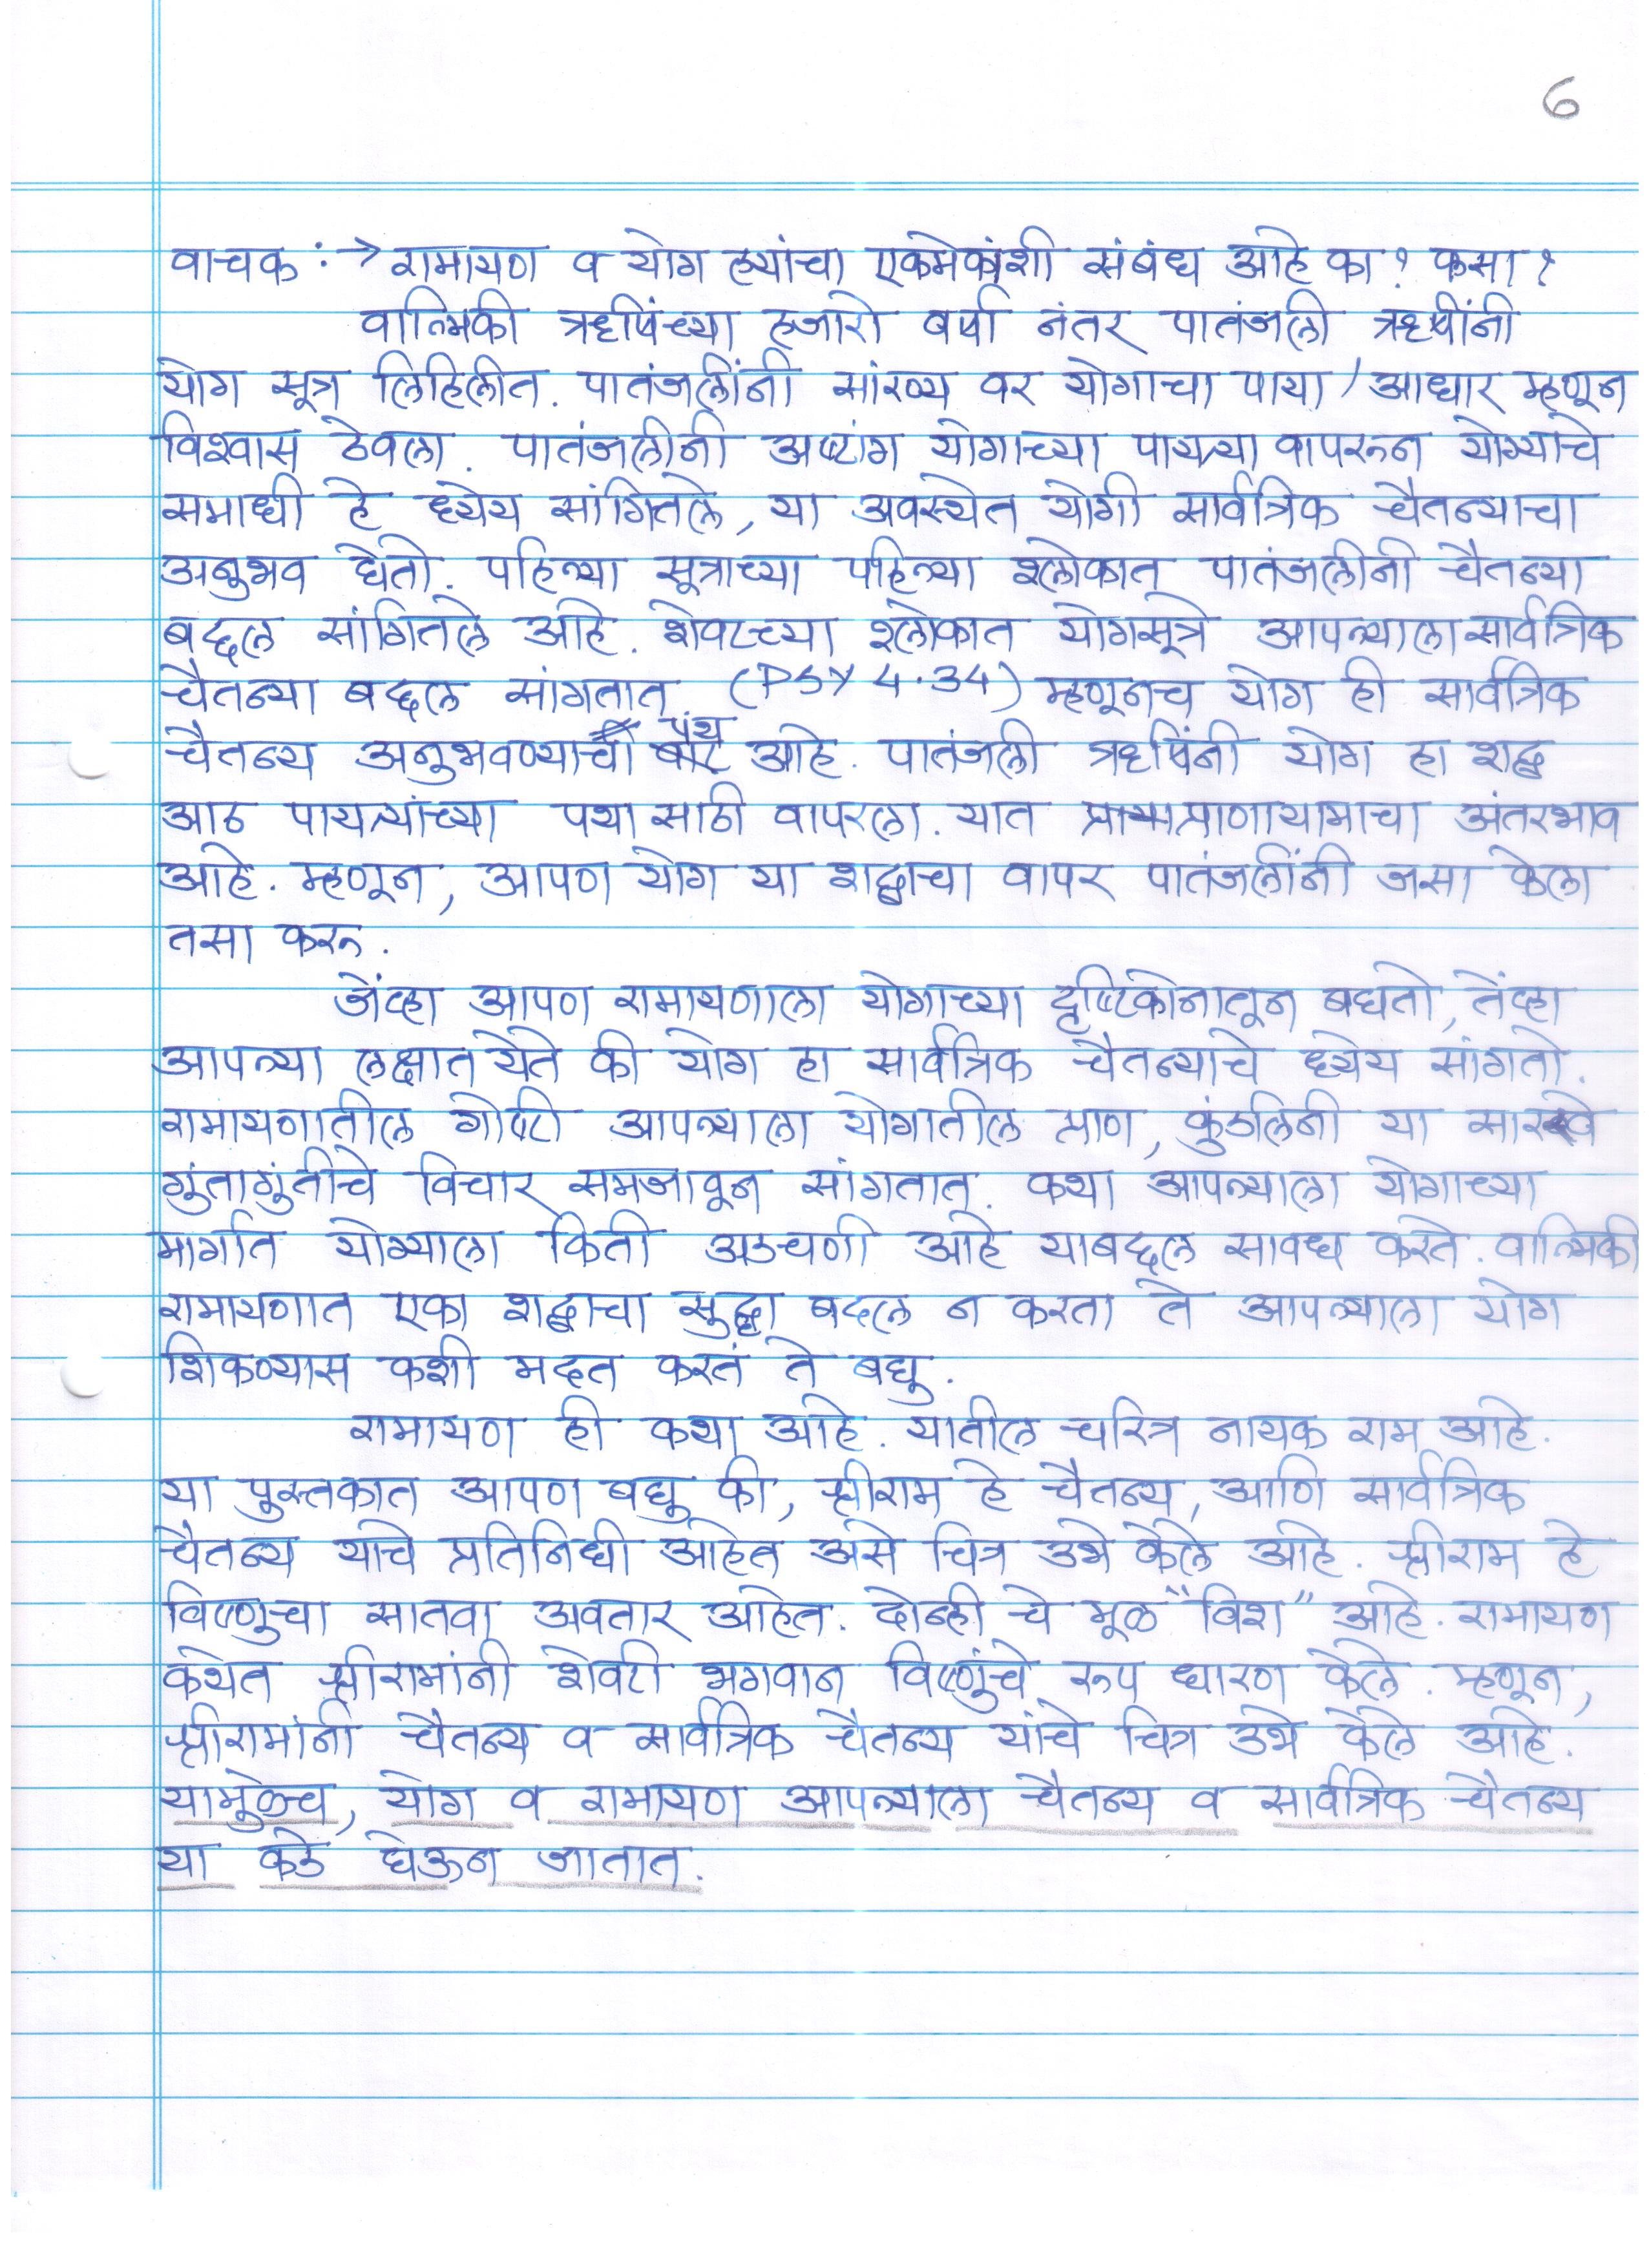 6
वाचक :→ रामायण व योग ह्यांचा एकमेकांशी संबंध आहे का? कसा?
वाल्मिकी ऋषिंच्या हजारो वर्षा नंतर पातंजली ऋषींनी
योग सूत्र लिहिलीत. पातंजलींनी सांख्य वर योगाचा पाया/आधार म्हणून
विश्वास ठेवला. पातंजलीनी अष्टांग योगाच्या पायऱ्या वापरून योग्याचे
समाधी हे ध्येय सांगितले, या अवस्थेत योगी सार्वत्रिक चैतन्याचा
अनुभव घेतो. पहिल्या सूत्राच्या पहिल्या श्लोकात पातंजलीनी चैतन्या
बद्दल सांगितले आहे. शेवटच्या श्लोकात योगसूत्रे आपल्याला सार्वत्रिक
चैतन्या बद्दल सांगतात (PSY 4.34) म्हणूनच योग ही सार्वत्रिक
चैतन्य अनुभवण्याचा पंथ आहे. पातंजली ऋषिंनी योग हा शद्ब
आठ पायऱ्यांच्या पथा साठी वापरला. यात प्राणायामाचा अंतरभाव
आहे. म्हणून, आपण योग या शद्बाचा वापर पातंजलींनी जसा केला
तसा करू.
जेंव्हा आपण रामायणाला योगाच्या दृष्टिकोनातून बघतो, तेंव्हा
आपल्या लक्षात येते की योग हा सार्वत्रिक चैतन्याचे ध्येय सांगतो.
रामायणातील गोष्टी आपल्याला योगातील प्राण, कुंडलिनी या सारखे
गुंतागुंतीचे विचार समजावून सांगतात. कथा आपल्याला योगाच्या
मार्गात योग्याला किती अडचणी आहे याबद्दल सावध करते. वाल्मिकी
रामायणात एका शद्बाचा सुद्धा बदल न करता ते आपल्याला योग
शिकण्यास कशी मदत करतं ते बघु.
रामायण ही कथा आहे. यातील चरित्र नायक राम आहे.
या पुस्तकात आपण बघु की, श्रीराम हे चैतन्य, आणि सार्वत्रिक
चैतन्य याचे प्रतिनिधी आहेत असे चित्र उभे केले आहे. श्रीराम हे
विष्णुचा सातवा अवतार आहेत. दोन्ही चे मूळ "विश" आहे. रामायण
कथेत श्रीरामांनी शेवटी भगवान विष्णुंचे रूप धारण केले. म्हणून,
श्रीरामांनी चैतन्य व सार्वत्रिक चैतन्य यांचे चित्र उभे केले आहे.
यामुळेच, योग व रामायण आपल्याला चैतन्य व सार्वत्रिक चैतन्य
या कडे घेऊन जातात.